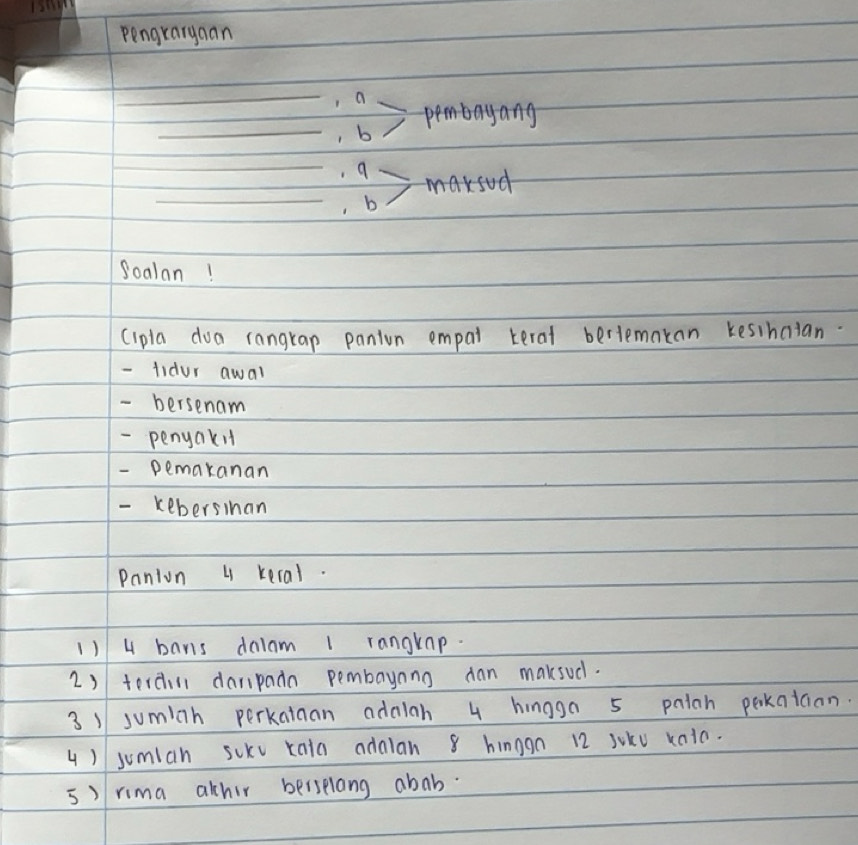 Pengkaryaan
, a
, b
pembayang
, a
, b
maksud
Soalan !
Cipta dua rangkap pantun empat kerat bertemakan kesihatan.
- tidur awal
- bersenam
- penyakit
- pemakanan
- kebersihan
Pantun 4 kerat.
1) 4 baris dalam 1 rangkap.
2) terdiri daripada pembayang dan maksud.
3) jumlah perkataan adalah 4 hingga 5 patah perkataan.
4) jumlah suku kata adalah 8 hingga 12 suku kata.
5) rima akhir berselang abab.